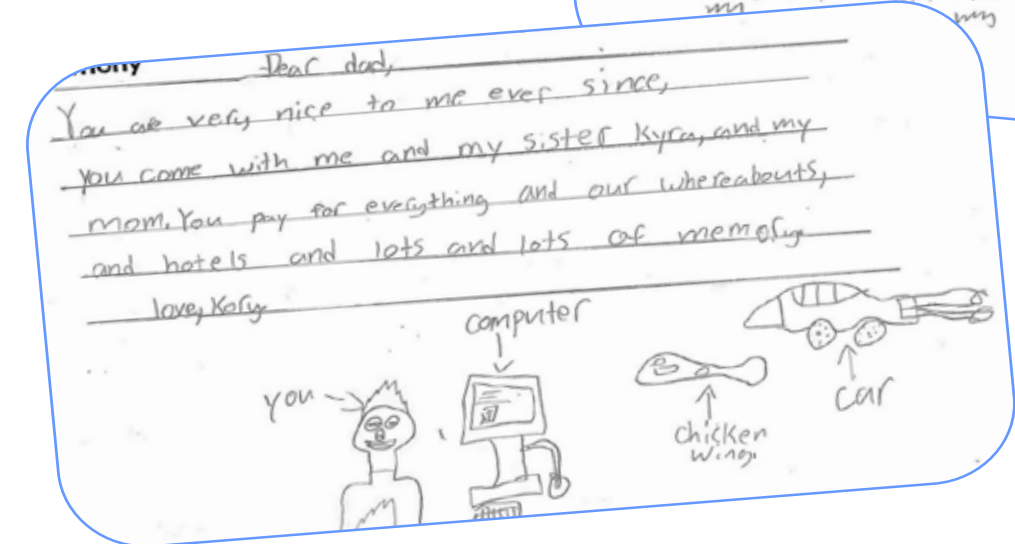 my
my
Dear dad,
You are very nice to me ever since,
you come with me and my sister Kyra, and my
mom. You pay for everything and our whereabouts,
and hotels and lots and lots of memory
love, Kory
computer
you
car
chicken
wing